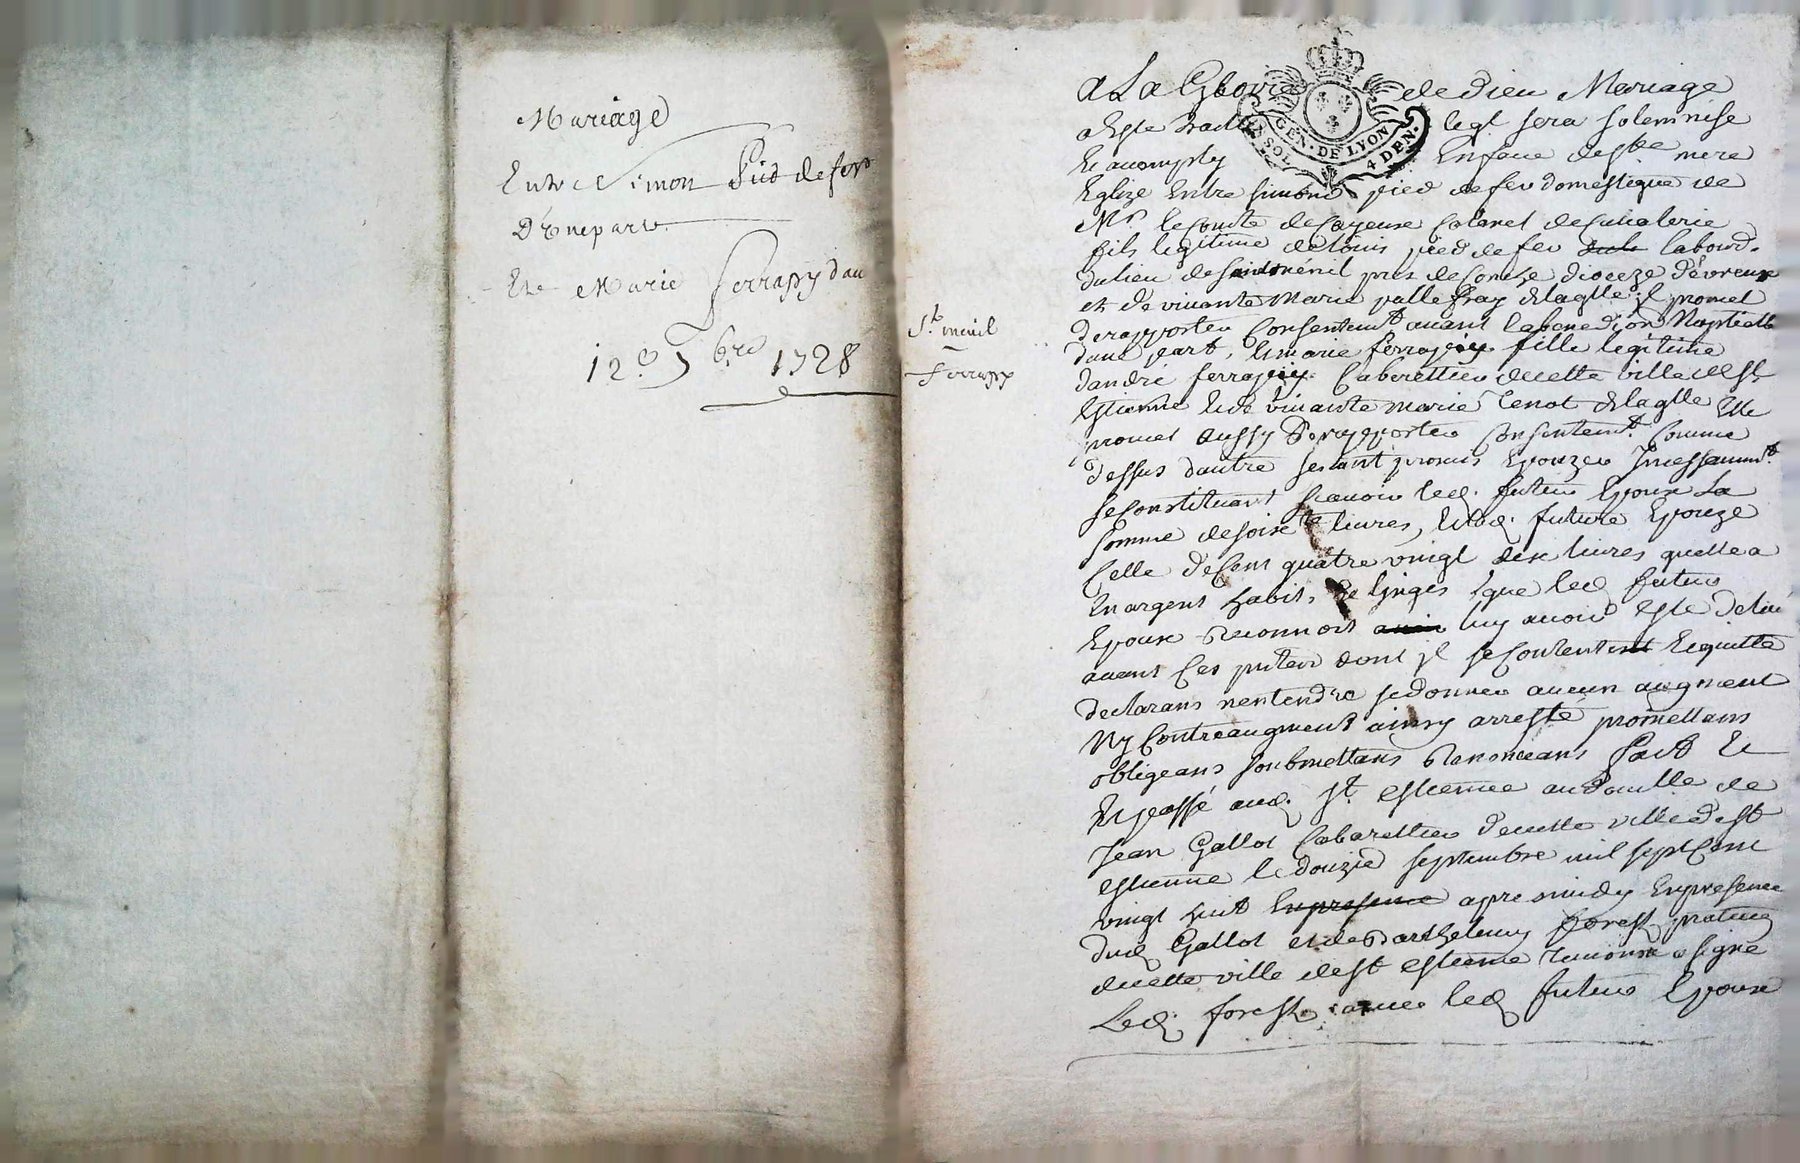 Mariage
Entre Simon Pied de feu
D'Une part
Et Marie Ferrapy d'au
12e 7bre 1728
St. menil
Ferrapy
GEN. DE LYON
SOL 4 DEN.
A La Gloire de Dieu Mariage
a Este traité leql sera solemnise
Et accomply En face de Ste mere
Eglize Entre Simond pied de feu domestique de
Mr. le Comte de Cayeux Colonel de Cavalerie
fils legitime de Louis pied de feu labourd.
du lieu de Saintménil pres de Conche dioceze d'évreux
et de vivante Marie palle fray Il promet
de rapporter Consentemt avant la benediction Nuptialle
dune part, Et marie ferrapy fille legitime
dandré ferrapy Cabarettier de cette ville de St
Estienne Et de vivante marie Tenot Elle
promet aussy De rapporter Consentemt. Comme
dessus dautre se sont promis Epouzer Incessamt.
se Constituant scavoir led. futur Epoux La
somme de soixte livres, Et lad. future Epouze
Celle de Cent quatre vingt dix livres quelle a
En argent habits, Linges que led futur
Epoux Reconnoit avoir luy avoir Este delivré
avant Ces pntes dont Il se Contente Et quitte
declarans nentendre se donner aucun augment
Ny Contreaugment ainsy arresté promettans
obligeans soubmettans Renonceans fait Et
Et passé aud. St. Estienne au Domille de
Jean Gallot Cabarettier de cette ville de St
Estienne le douzie septembre mil sept Cent
vingt huit En presence apres midy En presence
dud Gallot et de Barthelemy forest praticien
de cette ville de St Estienne a signé
Led. forest avec led futur Epoux